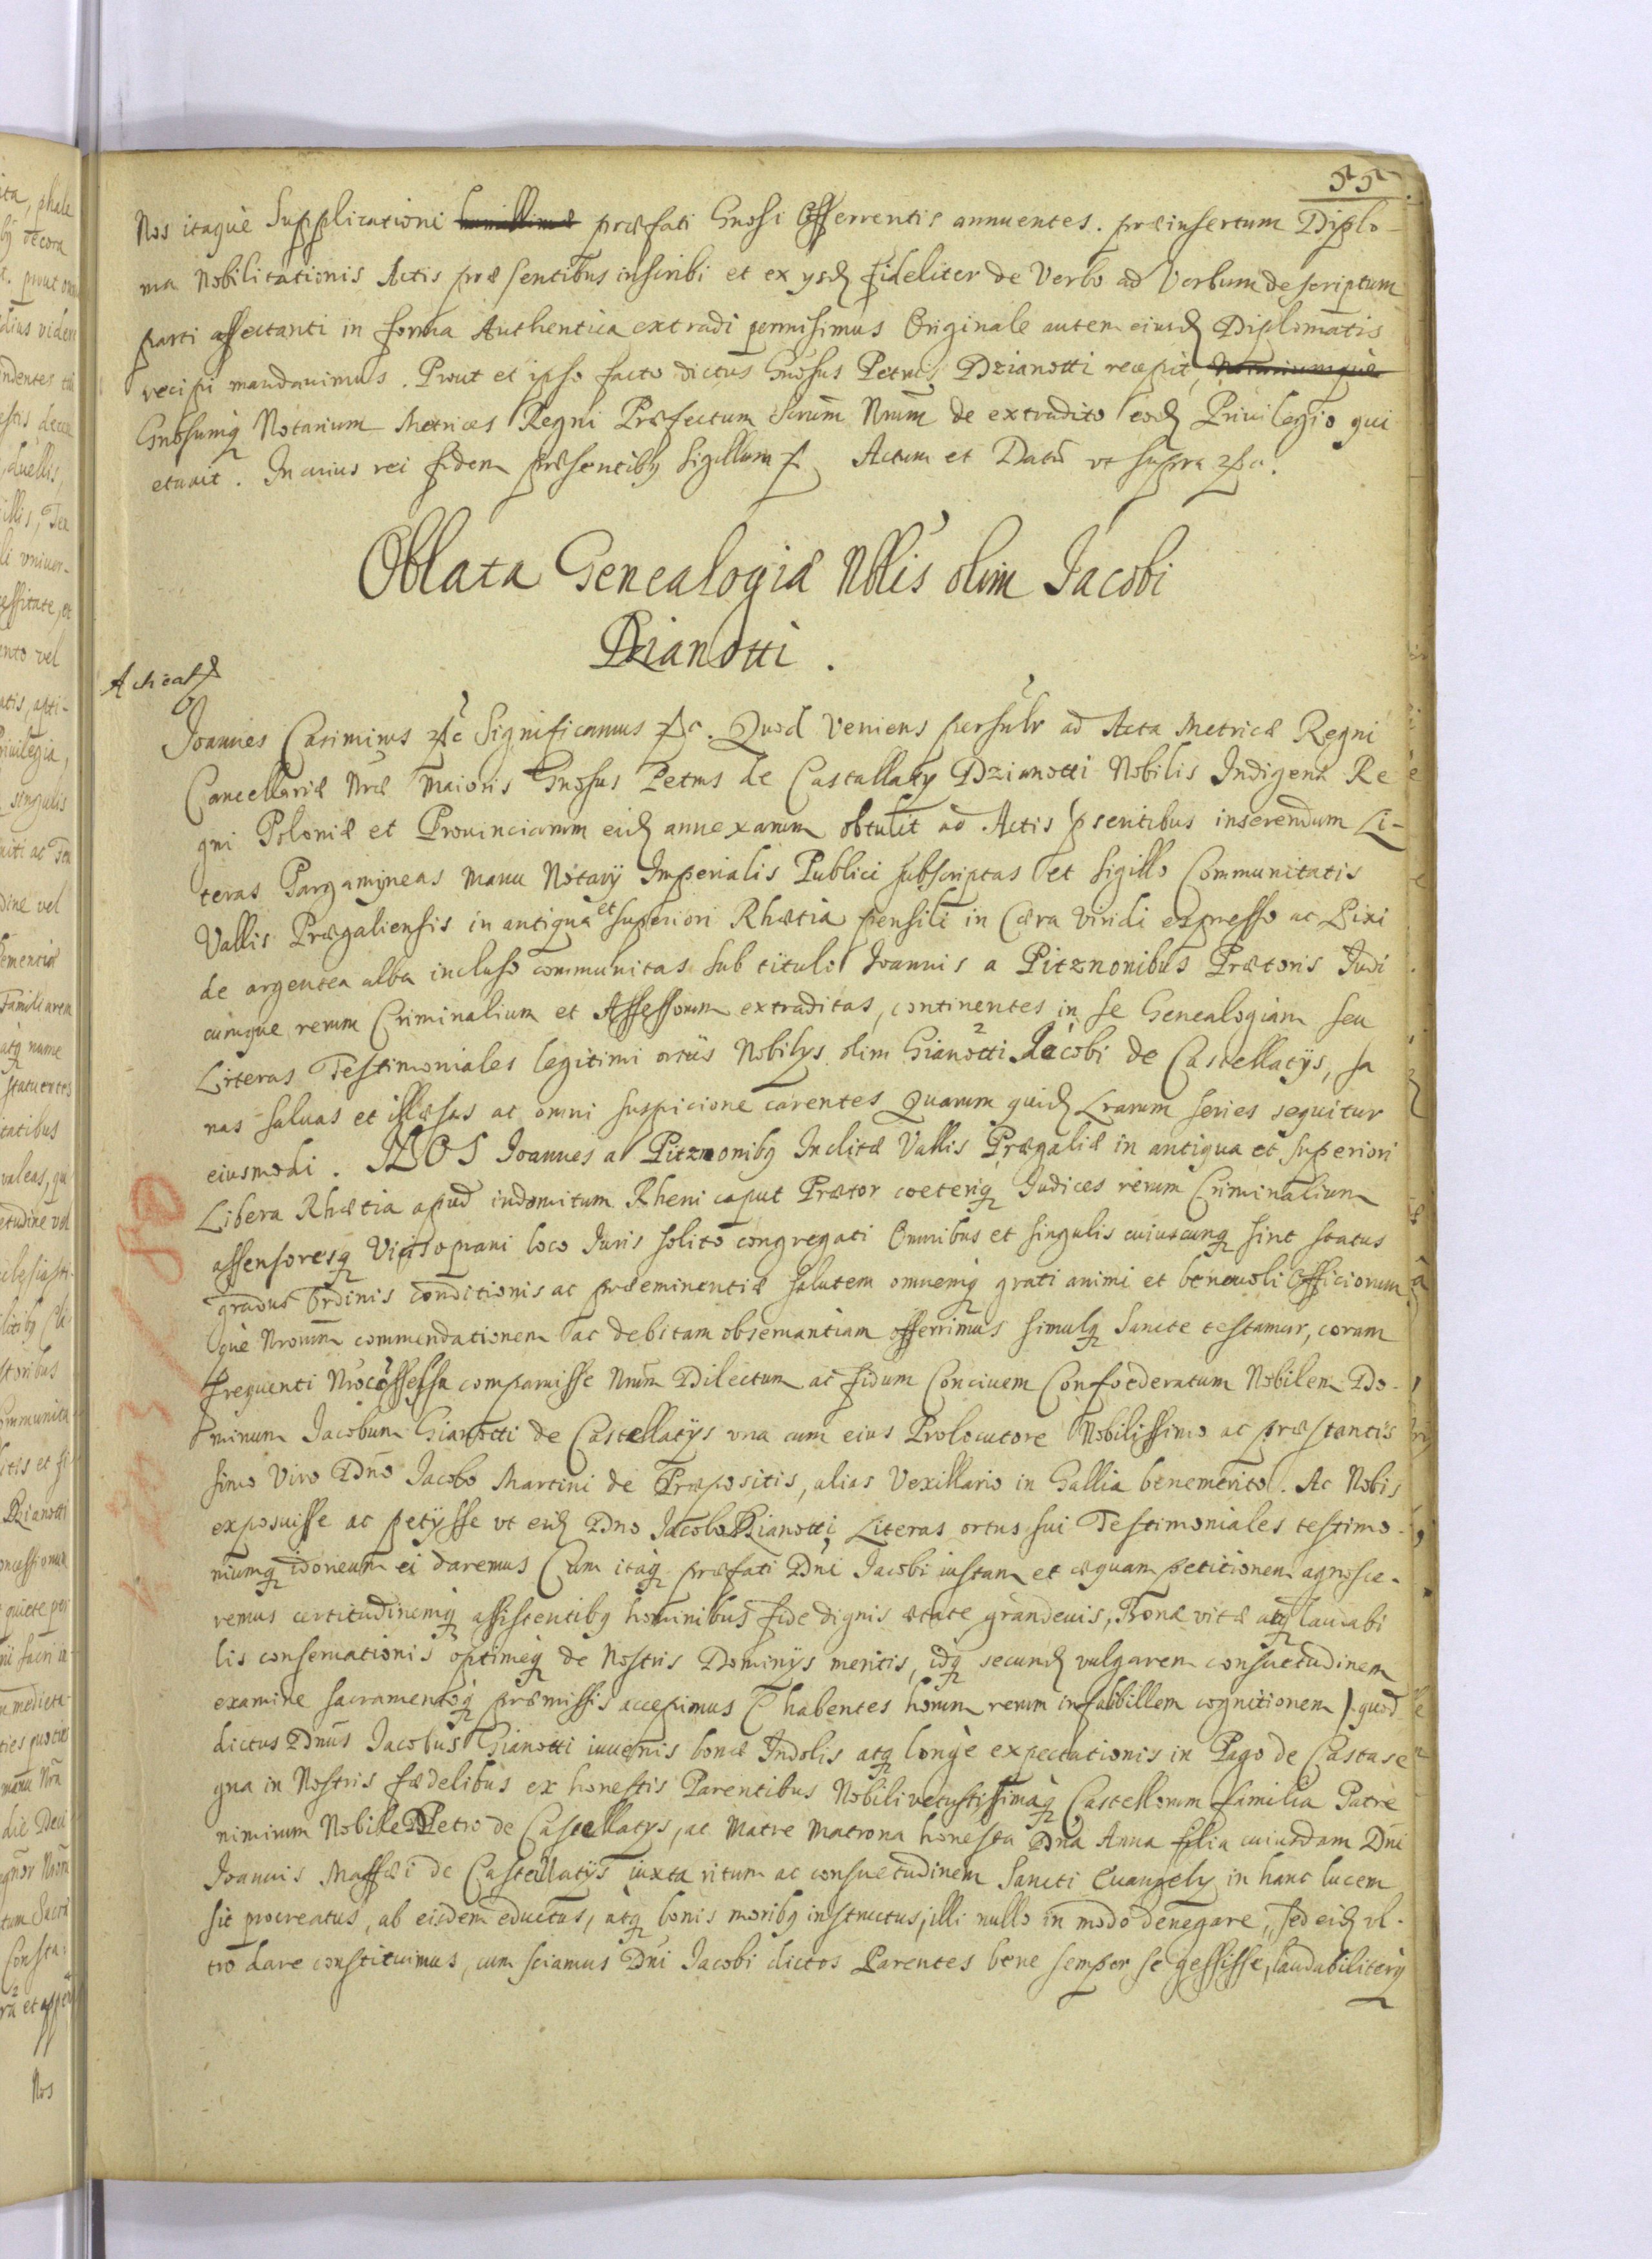 55
Nos itaque Supplicationi præfati Gnosi Offerrentis annuentes. præinsertum Diplo-
ma Nobilitationis Actis præsentibus inscribi et ex ysd fideliter de Verbo ad Verbum descriptum
parti affectanti in forma Authentica extradi permisimus Originale autem eiusd Diplomatis
recipi mandauimus. Prout et ipso facto dictus Gnosus Petrus Dzianotti recepit, Notariumque
Gnosumq Notarium Metrices Regni Præfectum Scrum Nrum de extradito eod Priuilegio qui
etauit. In cuius rei fidem præsentibq Sigillum f. Actum et Datū vt supra.
Oblata Genealogiæ Nblis olim Jacobi
Dzianotti.
Joannes Casimirus &c Significamus &c. Quod Veniens personlr ad Acta Metricæ Regni
Cancellariæ Nræ Maioris Gnosus Petrus de Castallaty Dzianotti Nobilis Indigena Re
gni Poloniæ et Prouinciarum eid annexarum obtulit ad Actis psentibus inserendum Li-
teras Pargamyneas manu Notarÿ Imperialis Publici subscriptas et sigillo Communitatis
Vallis Prægaliensis in antiqua et superiori Rhætia pensili in Cæra viridi expresso ac Pixi
de argentea alba incluso communitas sub titulo Joannis a Pitznonibus Prætoris Judi
cumque rerum Criminalium et Assessorum extraditas, continentes in se Genealogiam seu
Literas Testimoniales legitimi ortus Nobilys olim Gianotti Jacobi de Castellatÿs, sa
nas saluas et illæsas ac omni suspicione carentes Quarum quid Lrarum series sequitur
eiusmodi. NOS Joannes a Pitznonibq Inclitæ Vallis Prægaliæ in antiqua et superiori
Libera Rhætia apud indomitum Rheni caput Prætor cœteriq Judices rerum Criminalium
assensoresq Vicosoprani loco Juris solito congregati Omnibus et singulis cuiuscunq sint status
gradus Ordinis conditionis ac præeminentiæ salutem omnemq grati animi et beneuoli Officiorum
què Nrorum commendationem ac debitam obseruantiam offerrimus simulq Sancte testamur, coram
frequenti Nro Cossessu comparuisse Nrum Dilectum ac fidum Conciuem Confœderatum Nobilem Do-
minum Jacobum Gianotti de Castellatÿs vna cum eius Prolocutore Nobilissimo ac præstantis
simo Viro Dno Jacobo Martini de Præpositis, alias Vexillario in Gallia benemerito. Ac Nobis
exposuisse ac petÿsse vt eid Dno Jacobo Dzianotti, Literas ortus sui Testimoniales testimo-
niumq idoneum ei daremus Cum itaq præfati Dni Jacobi iustam et æquam petitionem agnosce-
remus certitudinemq assistentibq hominibus fide dignis ætate grandeuis, Bonæ vitæ atq laudabi
lis conseruationis optimeq de Nostris Dominÿs meritis, idq secund vulgarem consuetudinem
examine sacramentoq præmissis accepimus (habentes horum rerum infalibillem cognitionem) quod
dictus Dnus Jacobus Gianotti iuuenis bonæ Indolis atq longè expectationis in Pago de Castase
gna in Nostris fædelibus ex honestis Parentibus Nobili vetustissimaq Castellorum familia Patre
nimirum Nobile Petro de Castellatys, ac Matre Matrona honesta Dna Anna filia cuiusdam Dni
Joannis Maffæi de Castellatÿs iuxta ritum ac consuetudinem Sancti Euangely in hanc lucem
sit procreatus, ab eisdem eductus, atq bonis moribq instructus, illi nullo in modo denegare, sed eid vl-
tro dare constituimus, cum sciamus Dni Jacobi dictos Parentes bene semper se gessisse, laudabiliterq